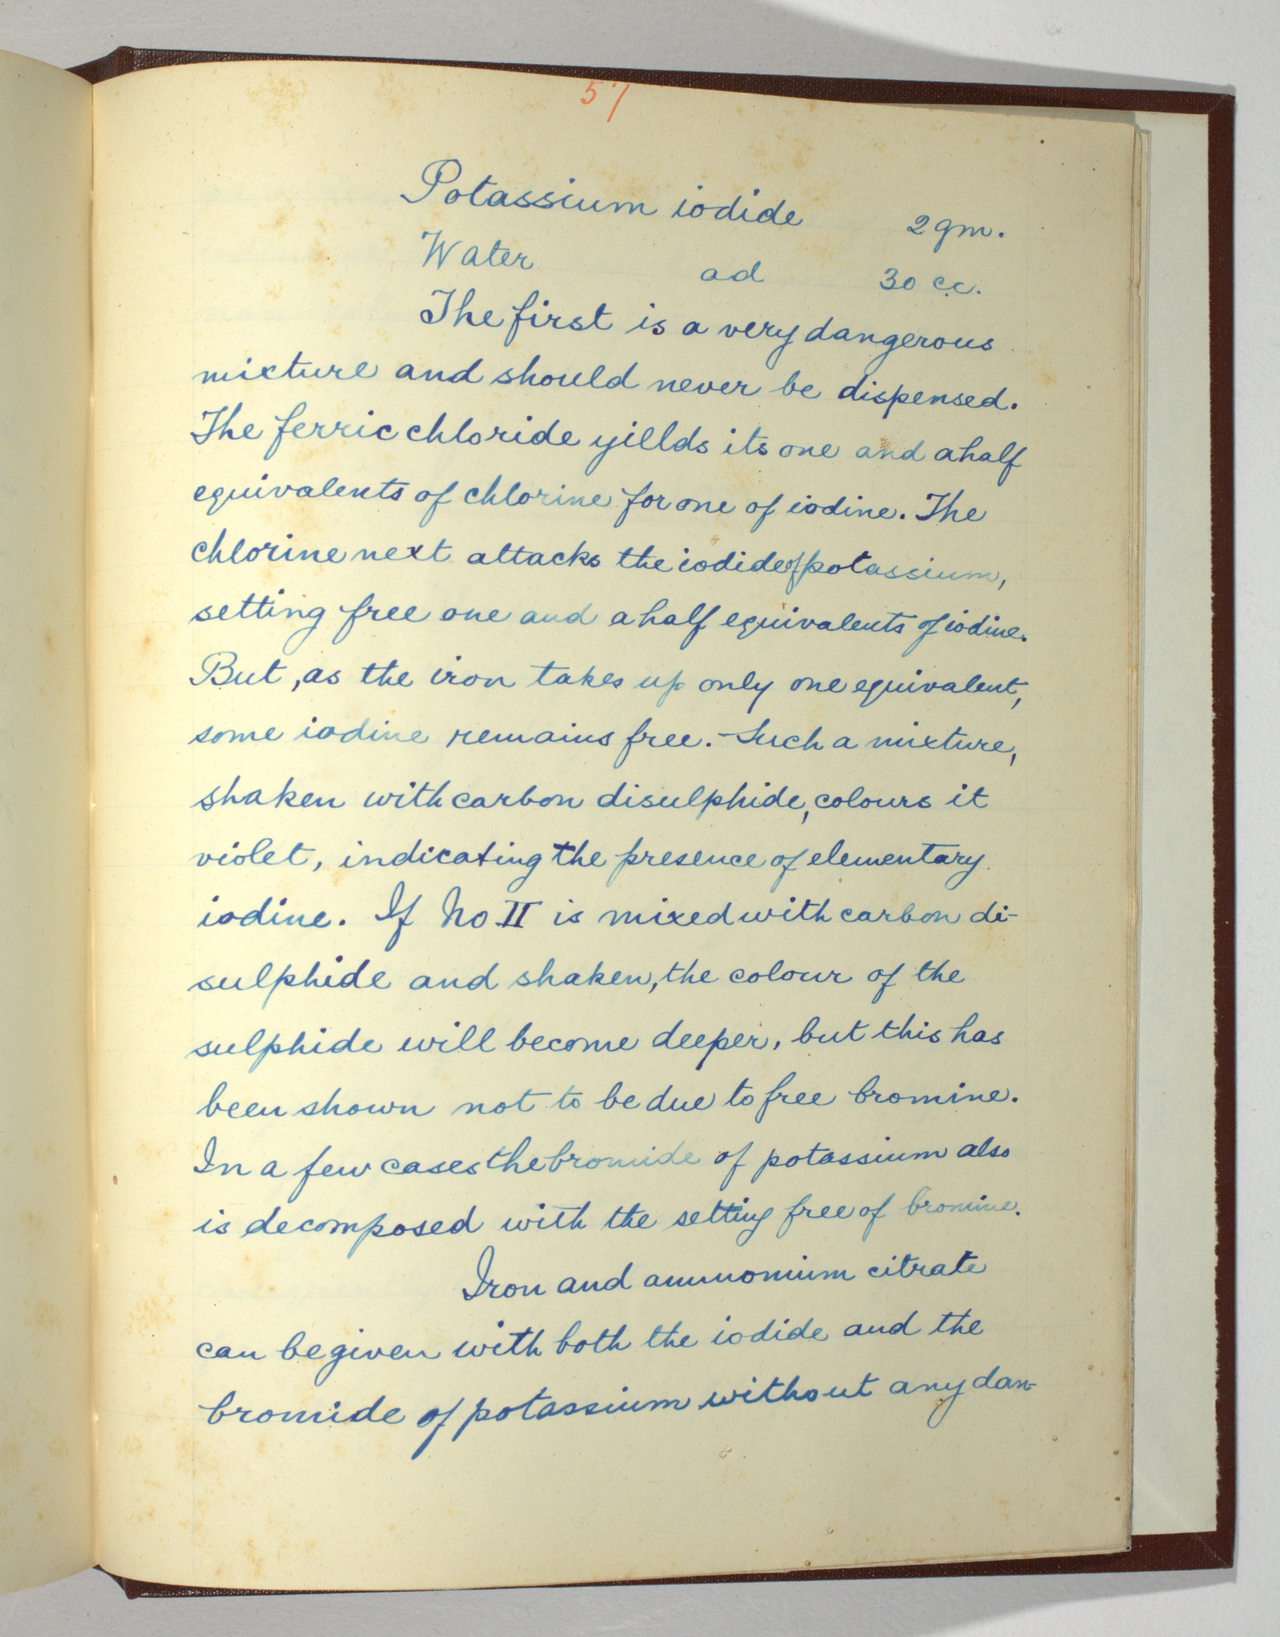 57
Potassium iodide 2 gm.
Water ad 30 cc.
The first is a very dangerous
mixture and should never be dispensed.
The ferric chloride yillds its one and a half
equivalents of chlorine for one of iodine. The
chlorine next attacks the iodide of potassium,
setting free one and a half equivalents of iodine.
But, as the iron takes up only one equivalent,
some iodine remains free. Such a mixture,
shaken with carbon disulphide, colours it
violet, indicating the presence of elementary
iodine. If No II is mixed with carbon di-
sulphide and shaken, the colour of the
sulphide will become deeper, but this has
been shown not to be due to free bromine.
In a few cases the bromide of potassium also
is decomposed with the setting free of bromine.
Iron and ammonium citrate
can be given with both the iodide and the
bromide of potassium without any dan-